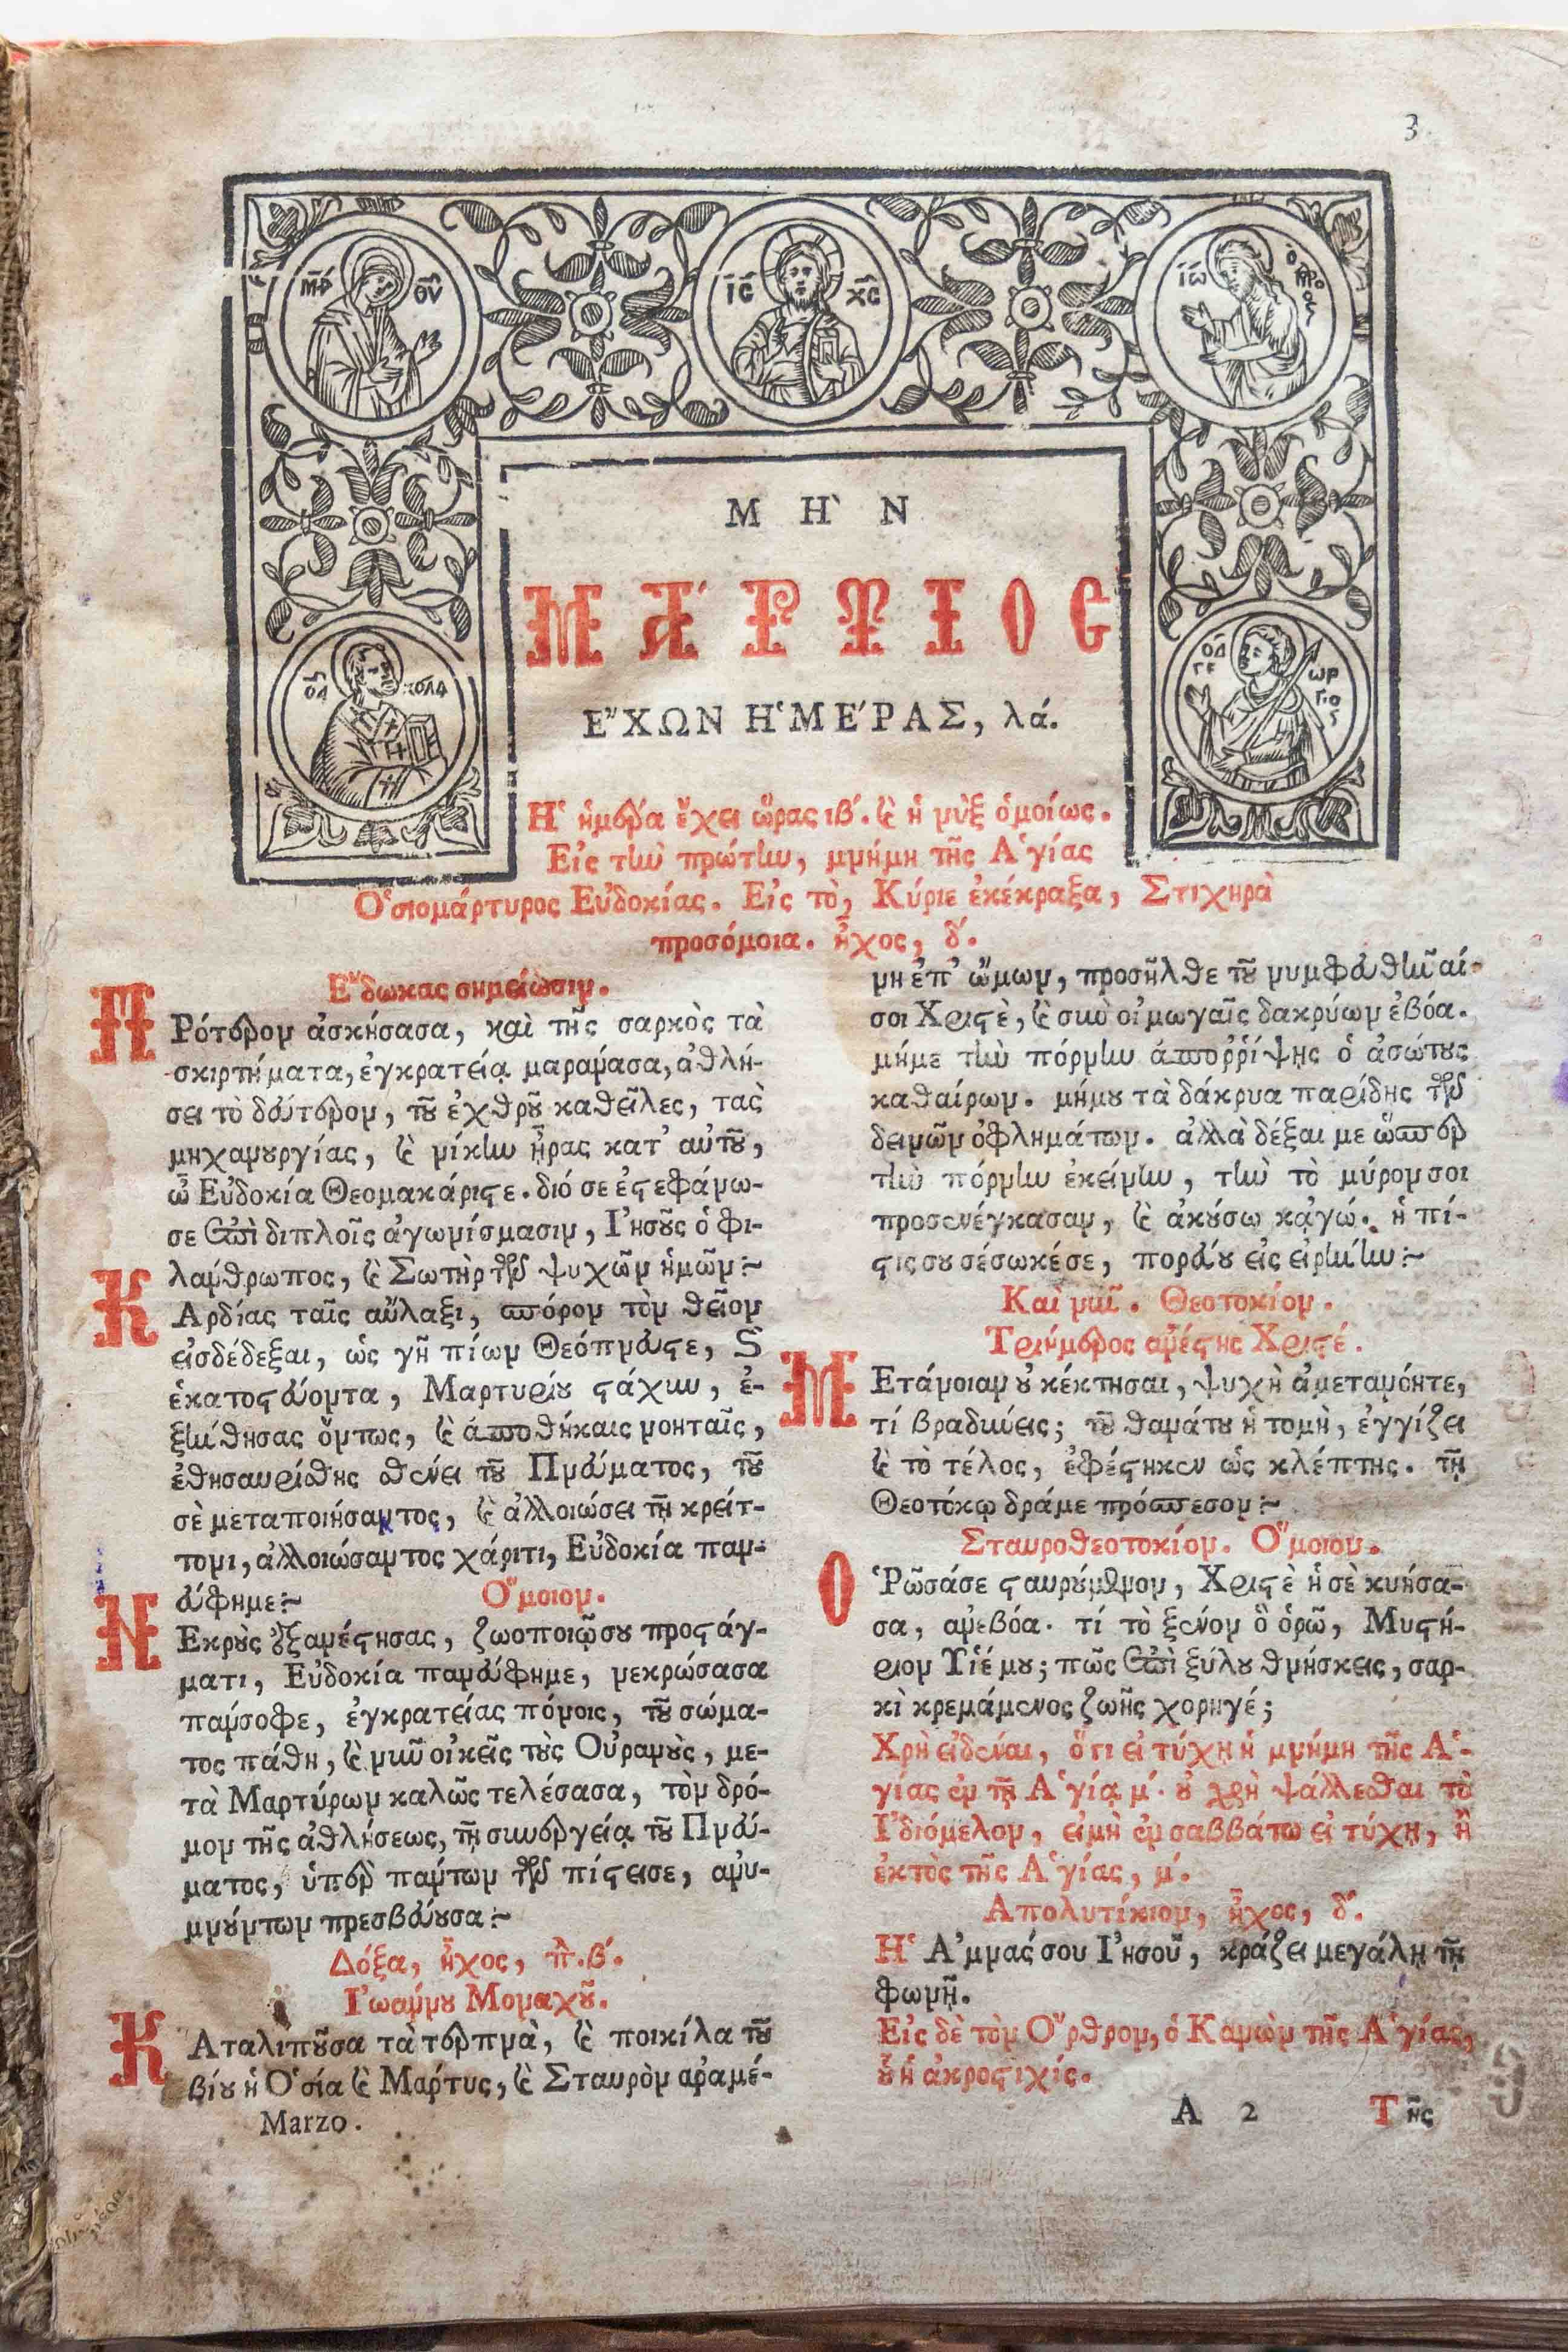 3
ΜΡ ΘΥ
ΙC ΧC
ΙΩ
ΜΗ῍Ν
ΜΆΡΤΙΟΣ
ἜΧΩΝ ἩΜΈΡΑΣ, λά.
Ἡ ἡμέρα ἔχει ὥρας ιβ΄. καὶ ἡ νὺξ ὁμοίως.
Εἰς τὴν πρώτην, μνήμη τῆς Ἁγίας
Ὁσιομάρτυρος Εὐδοκίας. Εἰς τὸ, Κύριε ἐκέκραξα, Στιχηρὰ
προσόμοια. ἦχος, δ΄.
Ἔδωκας σημείωσιν.
ΠΡότερον ἀσκήσασα, καὶ τῆς σαρκὸς τὰ
σκιρτήματα, ἐγκρατείᾳ μαράνασα, ἀθλή-
σει τὸ δεύτερον, τοῦ ἐχθροῦ καθεῖλες, τὰς
μηχανουργίας, καὶ νίκην ἦρας κατ' αὐτοῦ,
ὦ Εὐδοκία Θεομακάριστε. διό σε ἐστεφάνω-
σε ἐπὶ διπλοῖς ἀγωνίσμασιν, Ἰησοῦς ὁ φι-
λάνθρωπος, καὶ Σωτὴρ τῶν ψυχῶν ἡμῶν:~
ΚΑρδίας ταῖς αὔλαξι, σπόρον τὸν θεῖον
εἰσδέδεξαι, ὡς γῆ πίων Θεόπνευστε, καὶ
ἑκατοστεύοντα, Μαρτυρίου στάχυν, ἐ-
ξήνθησας ὄντως, καὶ ἀποθήκαις νοηταῖς,
ἐθησαυρίσθης σθένει τοῦ Πνεύματος, τοῦ
σὲ μεταποιήσαντος, καὶ ἀλλοιώσει τῇ κρείτ-
τονι, ἀλλοιώσαντος χάριτι, Εὐδοκία παν-
εύφημε:~ Ὅμοιον.
ΝΕκροὺς ἐξανέστησας, ζωοποιῷ σου προστάγ-
ματι, Εὐδοκία πανεύφημε, νεκρώσασα
πάνσοφε, ἐγκρατείας πόνοις, τοῦ σώμα-
τος πάθη, καὶ νῦν οἰκεῖς τοὺς Οὐρανοὺς, με-
τὰ Μαρτύρων καλῶς τελέσασα, τὸν δρό-
μον τῆς ἀθλήσεως, τῇ συνεργείᾳ τοῦ Πνεύ-
ματος, ὑπὲρ πάντων τῶν πίστει σε, ἀνυ-
μνούντων πρεσβεύουσα:~
Δόξα, ἦχος, πλ. β΄.
Ἰωάννου Μοναχοῦ.
ΚΑταλιποῦσα τὰ τερπνὰ, καὶ ποικίλα τοῦ
βίου ἡ Ὁσία καὶ Μάρτυς, καὶ Σταυρὸν ἀραμέ-
Marzo.
νη ἐπ' ὤμων, προσῆλθε τοῦ νυμφευθῆναί
σοι Χριστὲ, καὶ σὺν οἰμωγαῖς δακρύων ἐβόα.
μή με τὴν πόρνην ἀποῤῥίψῃς ὁ ἀσώτους
καθαίρων. μή μου τὰ δάκρυα παρίδῃς τῶν
δεινῶν ὀφλημάτων. ἀλλὰ δέξαι με ὥσπερ
τὴν πόρνην ἐκείνην, τὴν τὸ μύρον σοι
προσενέγκασαν, καὶ ἀκούσω κᾀγώ. ἡ πί-
στις σου σέσωκέ σε, πορεύου εἰς εἰρήνην:~
Καὶ νῦν. Θεοτοκίον.
Τριήμερος ἀνέστης Χριστέ.
ΜΕτάνοιαν οὐ κέκτησαι, ψυχὴ ἀμετανόητε,
τί βραδύνεις; τοῦ θανάτου ἡ τομὴ, ἐγγίζει
καὶ τὸ τέλος, ἐφέστηκεν ὡς κλέπτης. τῇ
Θεοτόκῳ δράμε πρόσπεσον:~
Σταυροθεοτοκίον. Ὅμοιον.
ὉΡῶσά σε σταυρούμενον, Χριστὲ ἡ σὲ κυήσα-
σα, ἀνεβόα. τί τὸ ξένον ὃ ὁρῶ, Μυστή-
ριον Υἱέ μου; πῶς ἐπὶ ξύλου θνήσκεις, σαρ-
κὶ κρεμάμενος ζωῆς χορηγέ;
Χρὴ εἰδέναι, ὅτι εἰ τύχῃ ἡ μνήμη τῆς Ἁ-
γίας ἐν τῇ Ἁγίᾳ μ΄. οὐ χρὴ ψάλλεσθαι τὸ
Ἰδιόμελον, εἰμὴ ἐν σαββάτω εἰ τύχῃ, ἢ
ἐκτὸς τῆς Ἁγίας, μ΄.
Απολυτίκιον, ἦχος, δ΄.
Ἡ Ἀμνάς σου Ἰησοῦ, κράζει μεγάλῃ τῇ
φωνῇ.
Εἰς δὲ τὸν Ὄρθρον, ὁ Κανὼν τῆς Ἁγίας,
οὗ ἡ ἀκροστιχίς.
Α 2 Τῆς